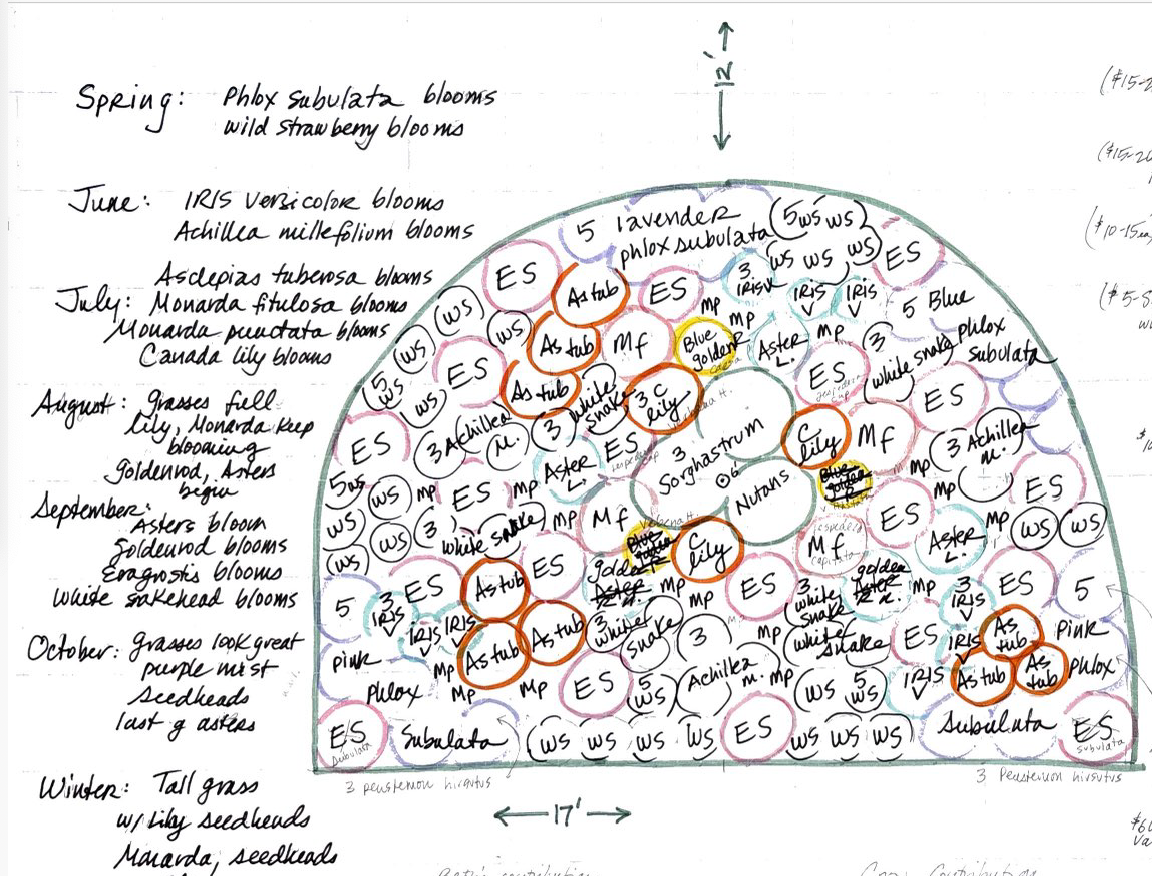 12'
Spring: Phlox subulata blooms
wild strawberry blooms
June: IRIS versicolor blooms
Achillea millefolium blooms
Asclepias tuberosa blooms
July: Monarda fitulosa blooms
Monarda punctata blooms
Canada lily blooms
August: grasses full
lily, Monarda keep
blooming
goldenrod, Asters
begin
September:
Asters bloom
goldenrod blooms
Eragrostis blooms
White snakehead blooms
October: grasses look great
purple mist
seedheads
last g asters
Winter: Tall grass
w/ Lily seedheads
Monarda, seedheads
($15-2
($15-20
($10-15ea
($5-8
5 lavender
phlox subulata
5 WS WS
WS WS WS
ES
As tub
ES
3 IRIS V
IRIS V
IRIS V
ES
5 Blue
phlox
subulata
WS
WS
WS
5 WS
WS
ES
As tub
Mf
mp
mp
Blue goldenR
Aster L.
mp
ES
3
white snake
ES
As tub
white
snake
3
3 C lily
C lily
Mf
3 Achillea
m.
ES
3 Achillea
M.
Aster L.
ES
3
Sorghastrum
6
Nutans
Blue golden R
mp
mp
ES
5 WS
WS
mp
ES
mp
WS
WS
WS
3
white snake
mp
Mf
Verbena H.
C lily
Mf
capitata
ES
Aster L.
mp
WS
WS
5
3 IRIS V
ES
As tub
ES
golden
Aster
mp
mp
ES
3 white snake
golden Aster
mp
3 IRIS
ES
5
IRIS V
IRIS V
As tub
As tub
3 white
snake
3
Achillea m.
mp
white snake
ES
IRIS V
As tub
Pink
pink
Phlox
mp
Mp
Mp
ES
5 WS
mp
WS
5 WS
IRIS V
As tub
As tub
Phlox
ES
Subulata
Subulata
WS WS WS WS
ES
WS WS WS
Subulata
ES
Subulata
3 penstemon hirsutus
3 Penstemon hirsutus
17'